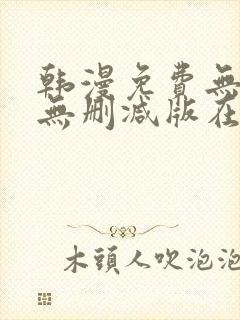 韩漫免費無
無删减版在
木頭人吹泡泡